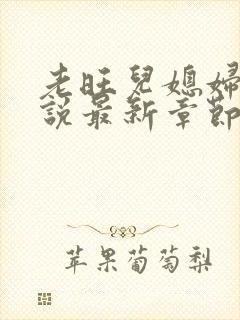 老旺兒媳婦
說最新章節
苹果葡萄梨